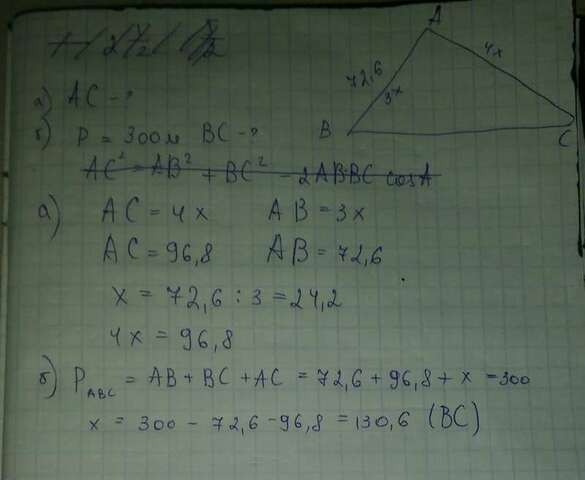 A
72,6
3x
4x
B
C
а) AC - ?
б) P = 300м BC - ?
AC² = AB² + BC² - 2AB·BC cosA
а) AC = 4x AB = 3x
AC = 96,8 AB = 72,6
x = 72,6 : 3 = 24,2
4x = 96,8
б) P_ABC = AB + BC + AC = 72,6 + 96,8 + x = 300
x = 300 - 72,6 - 96,8 = 130,6 (BC)